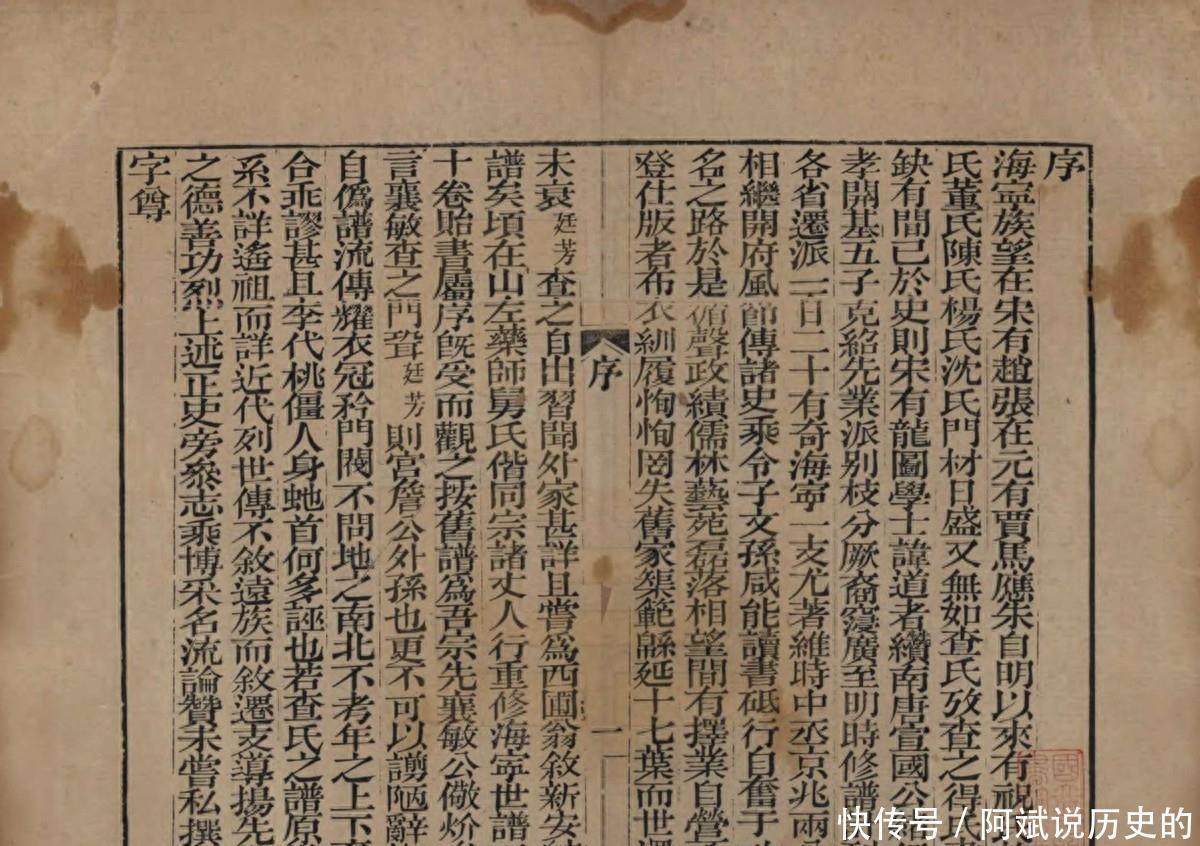 序
海寧族望在宋有趙張在元有賈馬應朱自明以來有祝
氏董氏陳氏楊氏沈氏門材日盛又無如查氏攷查之得氏
缺有間已於史則宋有龍圖學士諱道者纘南唐宣國公
孝開基五子克紹先業派别枝分厥裔寖廣至明時修譜
各省遷派一百二十有奇海寧一支尤著維時中丞京兆兩
相繼開府風節傳諸史乘令子文孫咸能讀書砥行自奮于
名之路於是循聲政績儒林藝苑磊落相望間有擇業自營
登仕版者布衣紃履恂恂罔失舊家榘範緜延十七葉而世
序
一
未衰廷芳查之自出習聞外家甚詳且嘗爲西圃翁敘新安
譜矣頃在山左藥師舅氏偕同宗諸丈人行重修海寧世譜
十卷貽書屬序旣受而觀之按舊譜爲吾宗先襄敏公儆炌
言襄敏查之門聟廷芳則宮詹公外孫也更不可以譾陋辭
自僞譜流傳耀衣冠矜門閥不問地之南北不考年之上下
合乖謬甚且李代桃僵人身虵首何多誣也若查氏之譜原
系不詳遙祖而詳近代列世傳不敘遠族而敘遷支導揚先
之德善功烈上述正史旁參志乘博采名流論贊未嘗私撰
字尊
快传号 / 阿斌说历史的